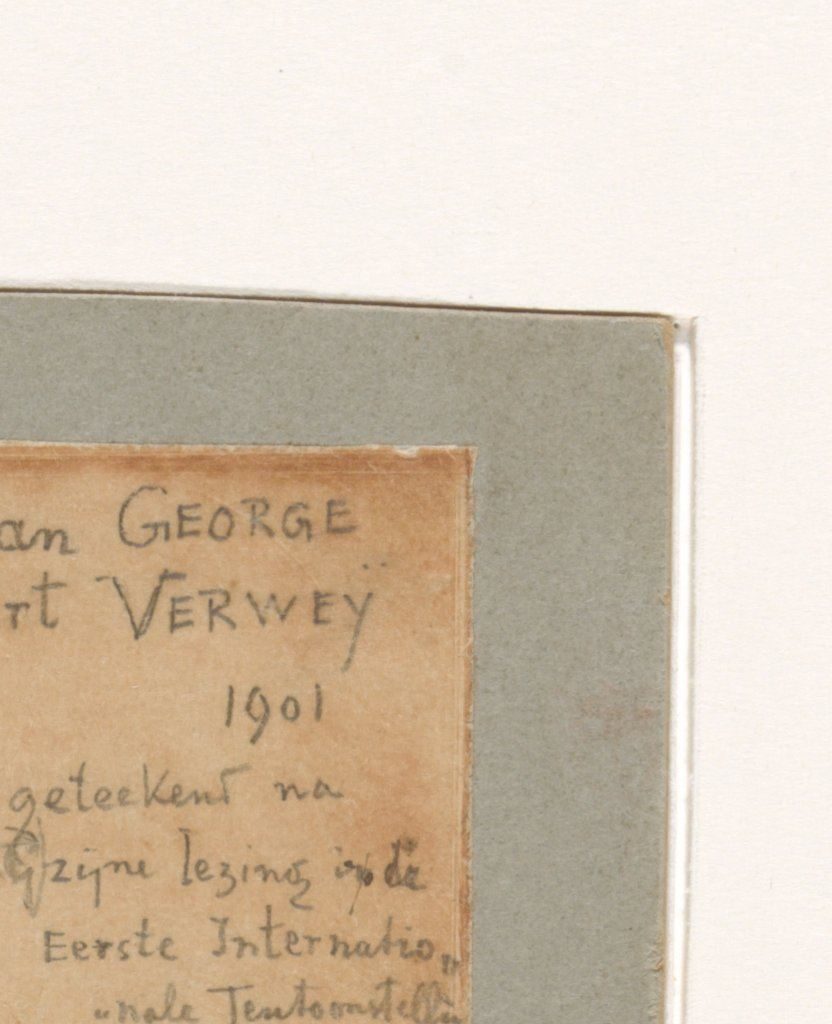 an GEORGE
rt VERWEŸ
1901
geteekend na
zijne lezing
Eerste Internatio„
„nale Tentoonstellin